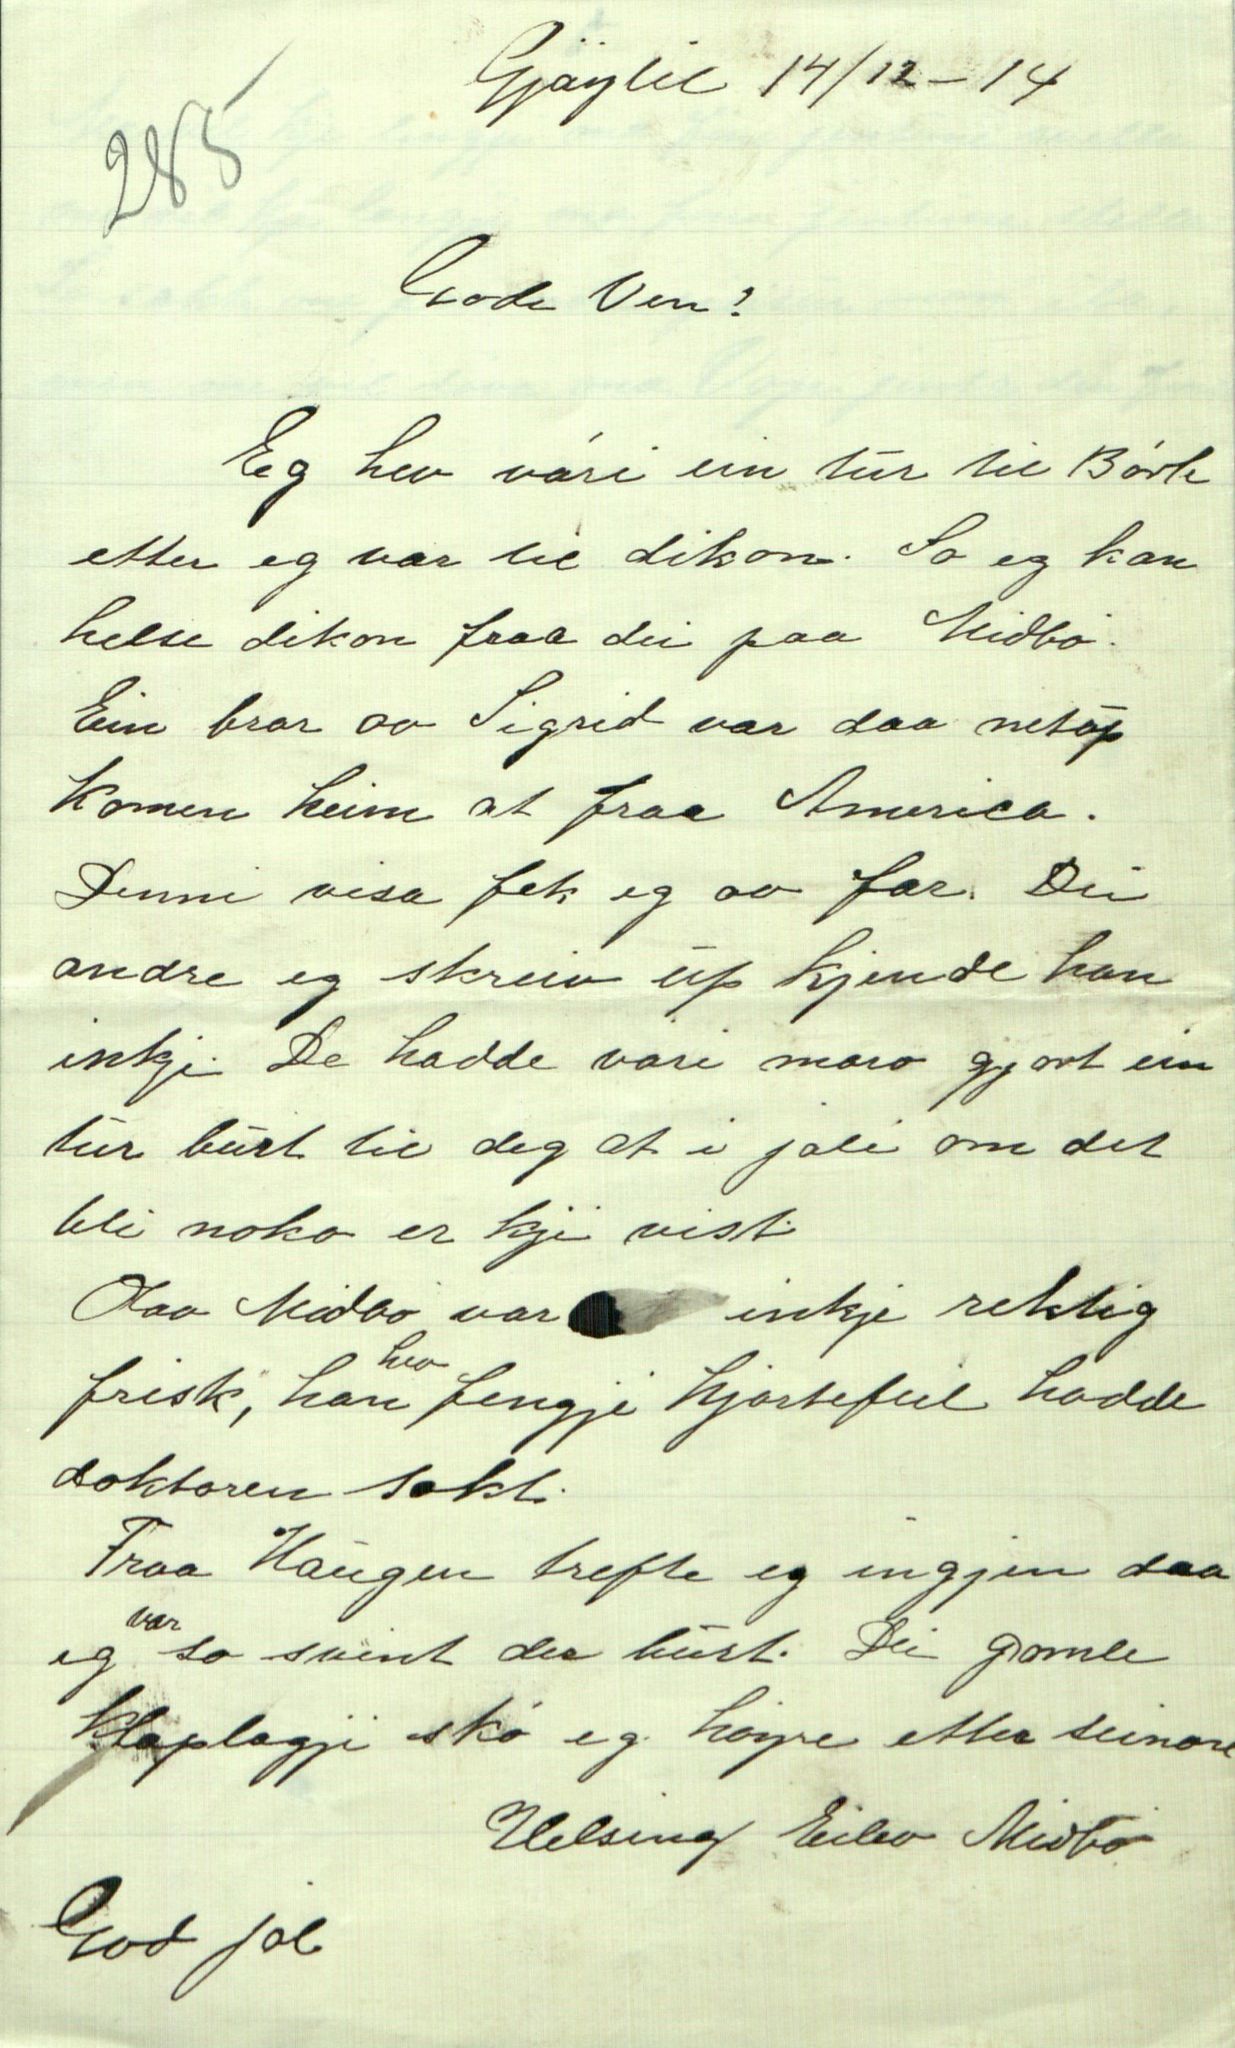 Gjäylil 14/12-14
285
Gode Ven!
Eg hev våri ein tur til Bórte
etter eg var til dikon. So eg kan
helse dikon fraa dei paa Midbó.
Ein bror av Sigrid var daa netop
komen heim at fraa America.
Denni visa fek eg av far. Dei
andre eg skreiv up kjende han
inkji. De hadde vari moro gjort ein
tur burt til deg at i joli om det
bli noko er kji vist.
Olav Midbó var inkje rektig
frisk, han hev fengji hjartefeil hadde
doktoren sakt.
Fraa Haugen trefte eg ingjen daa
eg var so svint der burt. Dei gomle
klaplagji skó eg höyre etter seinare
Helsing Eilev Midbó
God jol